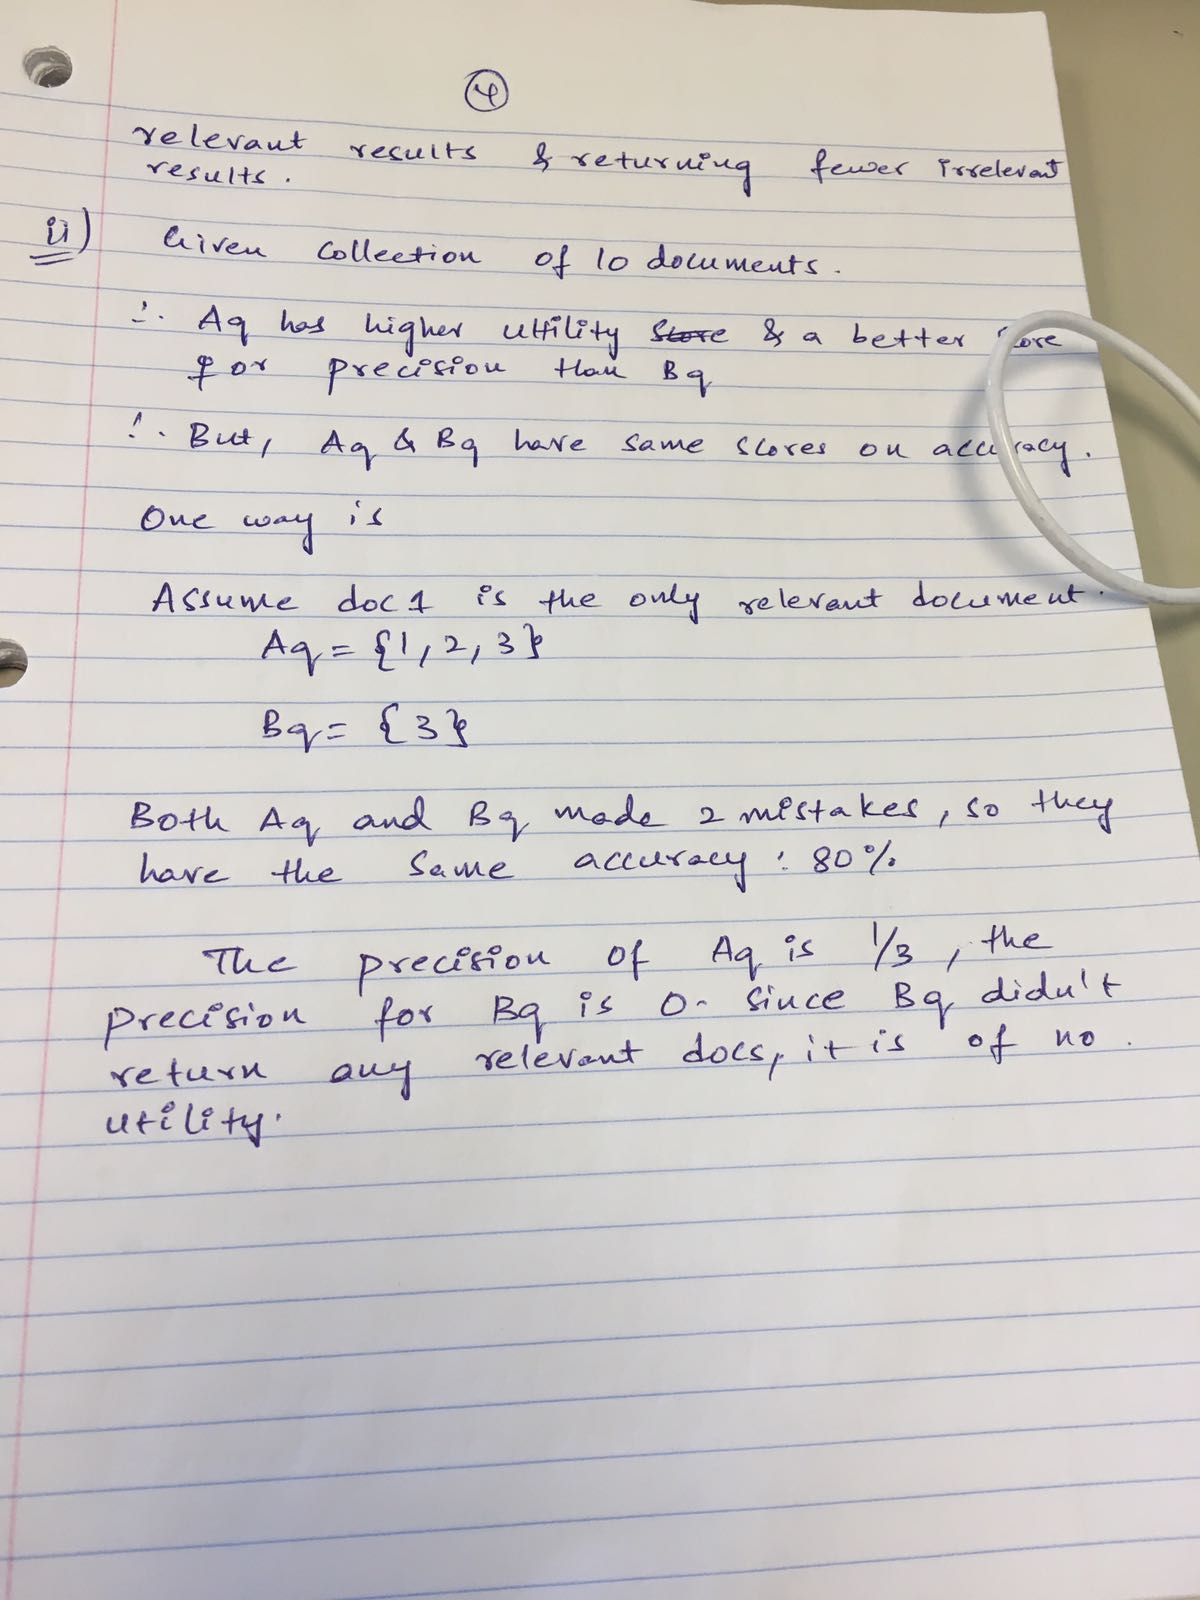 4
relevant results & returning fewer irrelevant
results.
ii) Given collection of 10 documents.
∴ Aq has higher utility Score & a better score
for precision than Bq
∴ But, Aq & Bq have same scores on accuracy.
One way is
Assume doc 1 is the only relevant document.
Aq = {1, 2, 3}
Bq = {3}
Both Aq and Bq made 2 mistakes, so they
have the same accuracy : 80%.
The precision of Aq is 1/3, the
precision for Bq is 0. Since Bq didn't
return any relevant docs, it is of no.
utility.